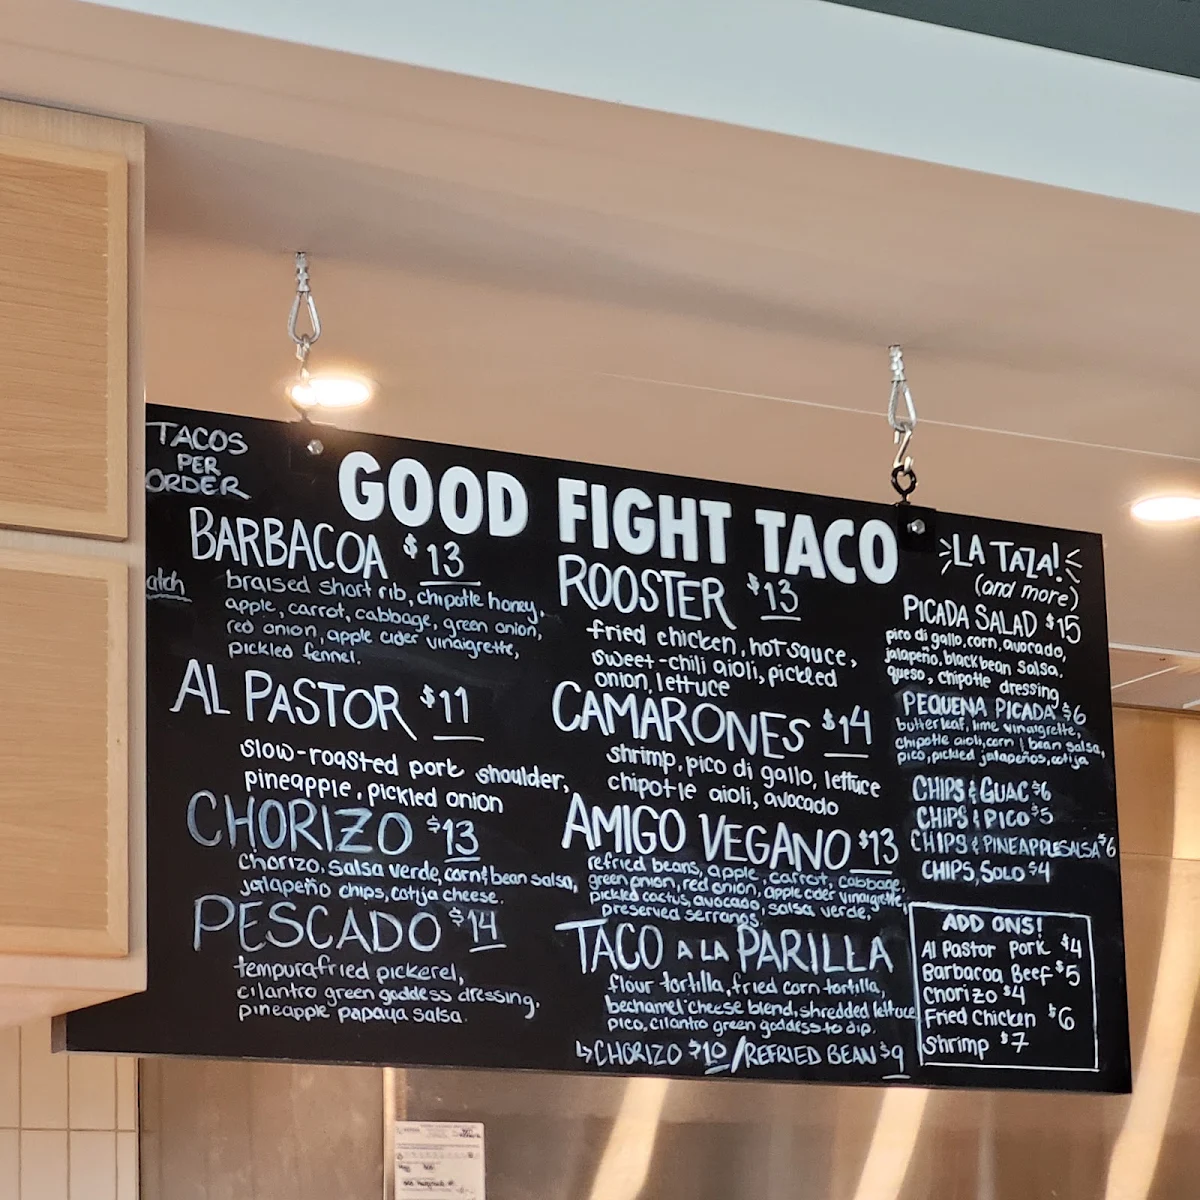 TACOS
PER
ORDER
GOOD FIGHT TACO
BARBACOA $13
braised short rib, chipotle honey,
apple, carrot, cabbage, green onion,
red onion, apple cider vinaigrette,
pickled fennel.
AL PASTOR $11
slow-roasted pork shoulder,
pineapple, pickled onion
CHORIZO $13
chorizo, salsa verde, corn & bean salsa,
jalapeño chips, cotija cheese.
PESCADO $14
tempurafried pickerel,
cilantro green goddess dressing,
pineapple papaya salsa.
ROOSTER $13
fried chicken, hot sauce,
sweet-chili aioli, pickled
onion, lettuce
CAMARONES $14
shrimp, pico di gallo, lettuce
chipotle aioli, avocado
AMIGO VEGANO $13
refried beans, apple, carrot, cabbage,
green onion, red onion, apple cider vinaigrette,
pickled cactus, avocado, salsa verde,
preserved serranos.
TACO A LA PARILLA
flour tortilla, fried corn tortilla,
bechamel cheese blend, shredded lettuce
pico, cilantro green goddess to dip.
↳CHORIZO $10/REFRIED BEAN $9
LA TAZA!
(and more)
PICADA SALAD $15
pico di gallo, corn, avocado,
jalapeño, black bean salsa,
queso, chipotle dressing
PEQUENA PICADA $6
butterleaf, lime vinaigrette,
chipotle aioli, corn | bean salsa,
pico, pickled jalapeños, cotija
CHIPS & GUAC $6
CHIPS & PICO $5
CHIPS & PINEAPPLE SALSA $6
CHIPS, SOLO $4
ADD ONS!
Al Pastor Pork $4
Barbacoa Beef $5
Chorizo $4
Fried Chicken $6
Shrimp $7